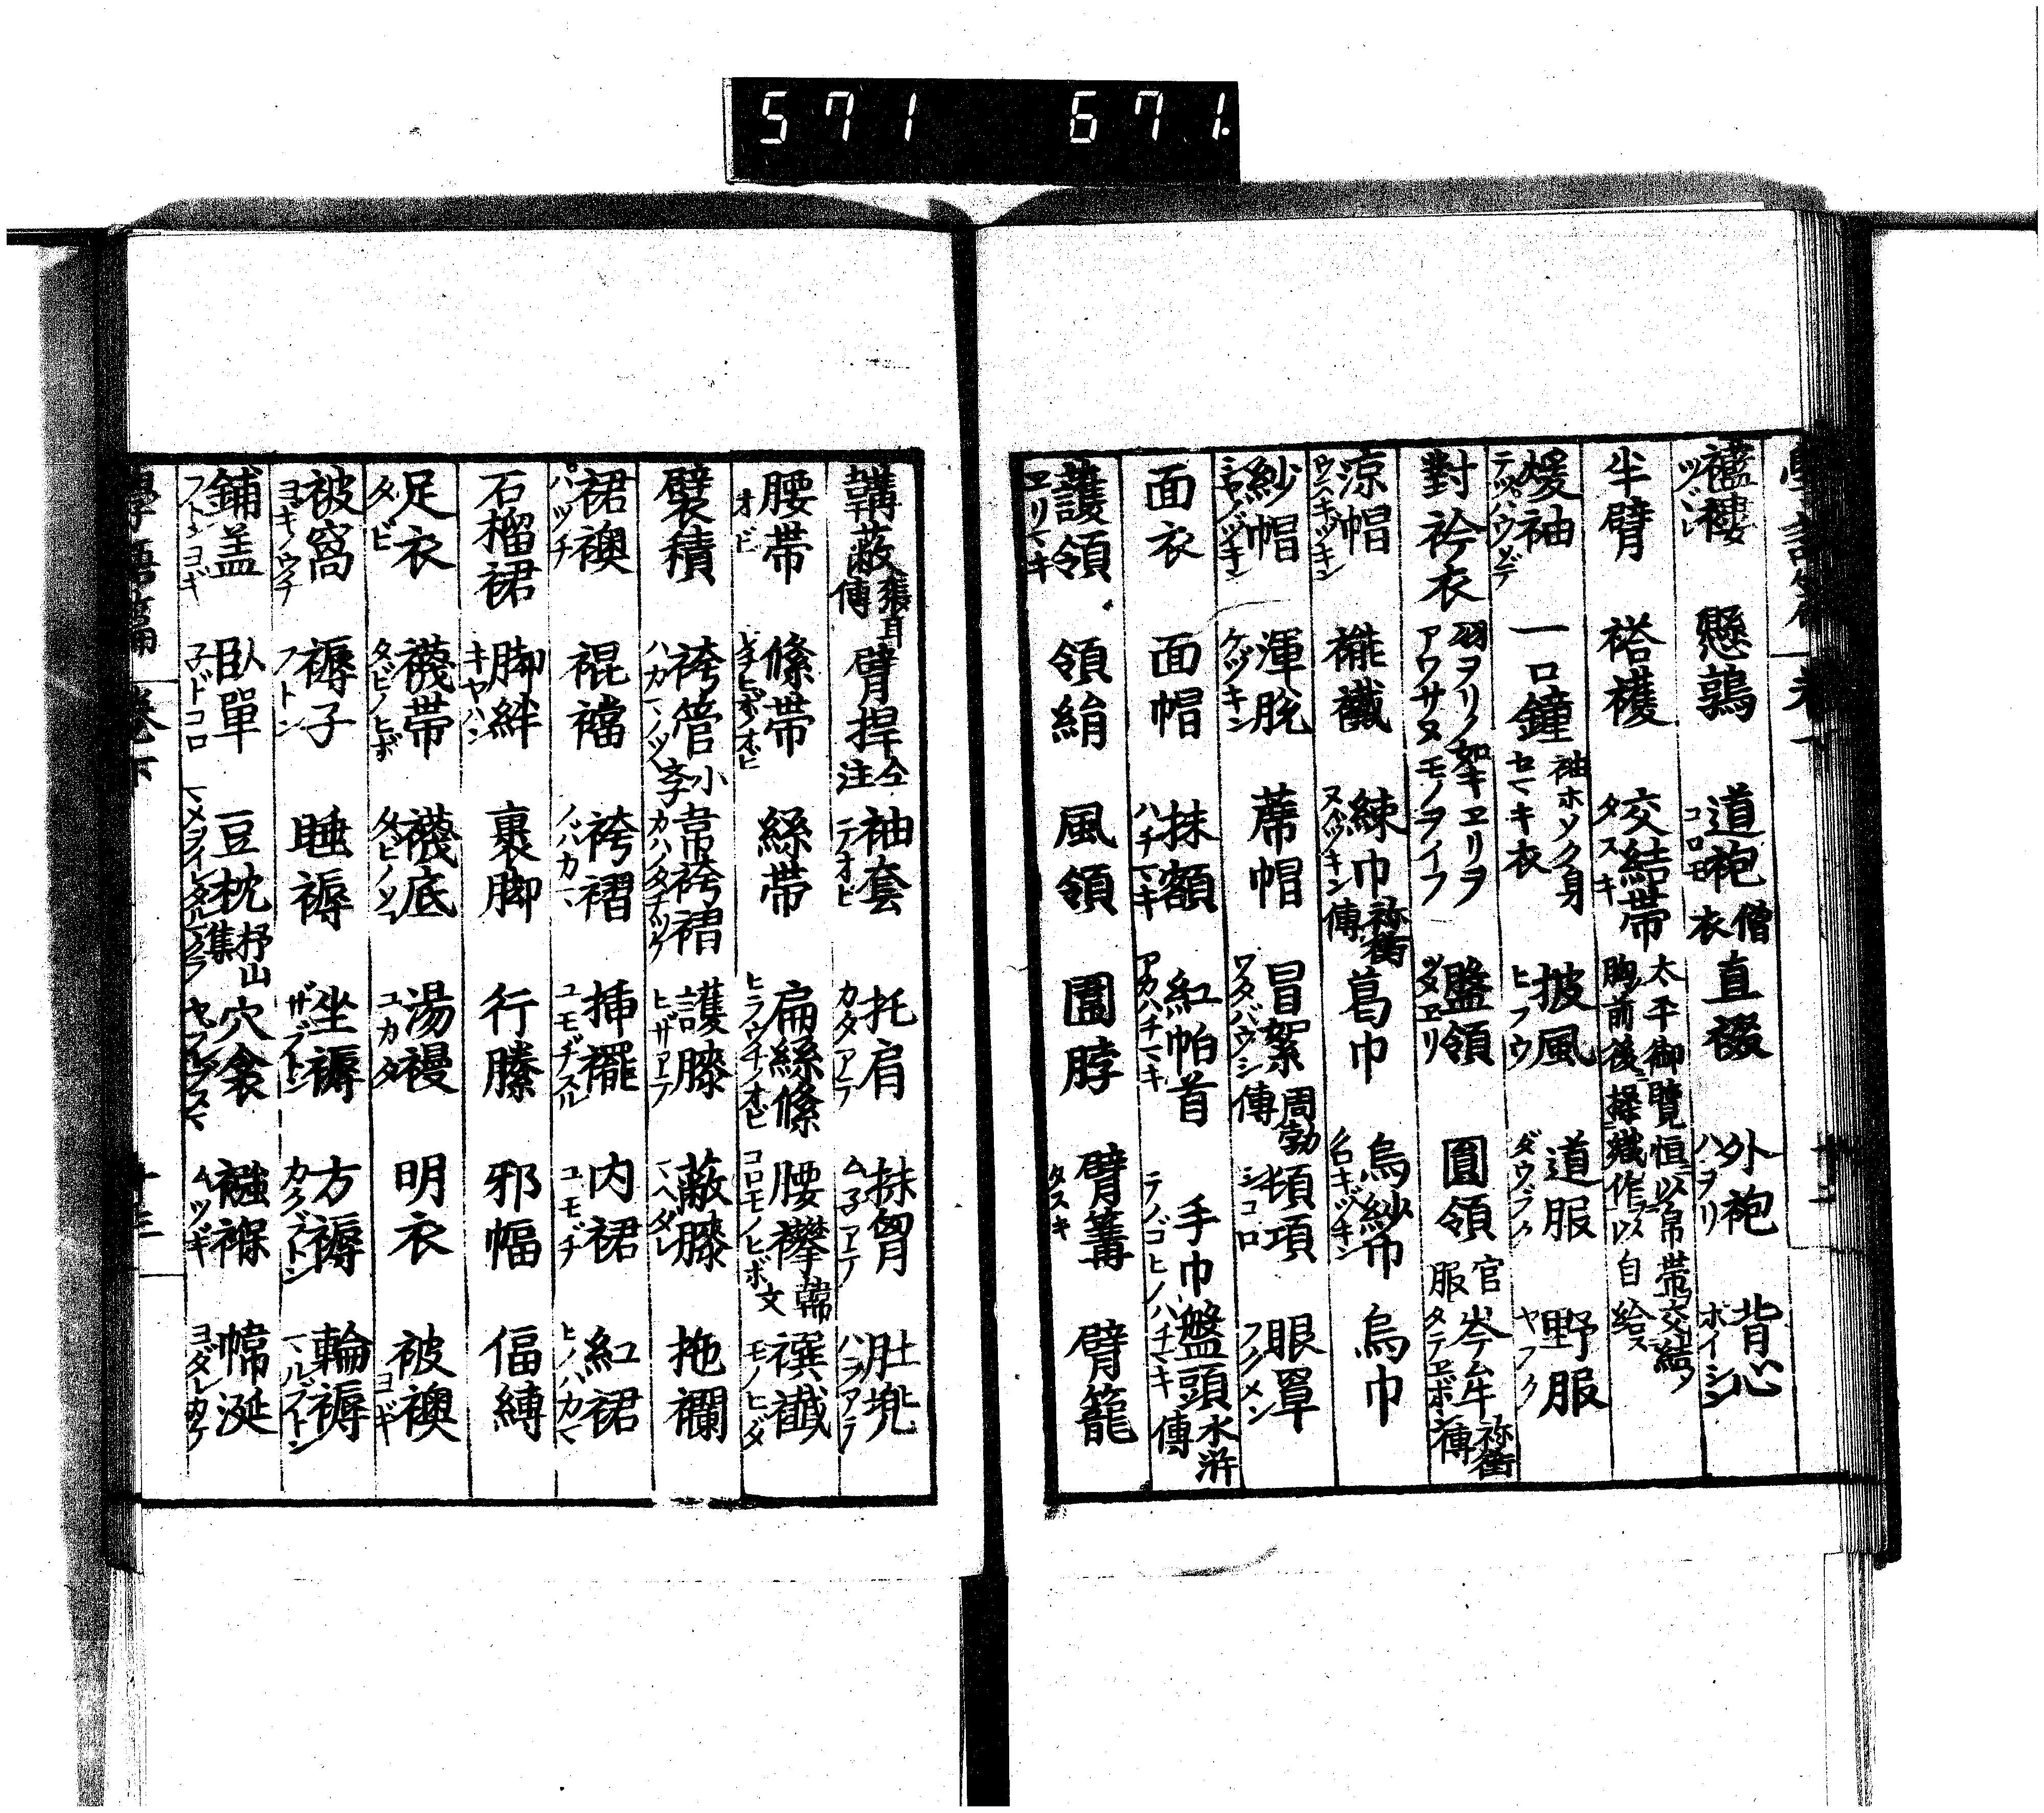 571 671.
學語篇 卷下 十二
襤褸 ツヾレ 懸鶉 道袍 コロモ 僧衣 直裰 外袍 ハヲリ 背心 ボイシン
半臂 袴襪 交結帶 タスキ 太平御覽恒以帛帶交結 胸前後操織作以自給ス
煖袖 テツハウソデ 一口鐘 袖ホソク身セマキ衣 披風 ヒフウ 道服 ダウブク 野服 ヤフク
對衿衣 羽ヲリノ如キヱリヲアワサヌモノヲイフ 盤領 ツタヱリ 圓領 官服 岑牟 タテヱボシ 祢衡傳
涼帽 ウスキヅキン 襹襶 練巾 ヌヘヅキン 祢衡傳 葛巾 烏紗巾 クロキヅキン 烏巾
紗帽 シヤノヅキン 渾脫 ケヅキン 蓆帽 冒絮 ワタバウシ 周勃傳 頓項 シコロ 眼罩 フクメン
面衣 面帽 抹額 ハチマキ 紅帕首 アカハチマキ 手巾盤頭 テノゴヒノハチマキ 水滸傳
護領 ヱリマキ 領絹 風領 圍脖 臂篝 タスキ 臂籠
韝蔽 張耳傳 臂捍 仝注 袖套 テオビ 托肩 カタアテ 抹胷 ムネアテ 肚兠 ハラアテ
腰帶 オビ 絛帶 ヒボノオビ 絲帶 扁絲絛 ヒラウチノオビ 腰襻 コロモノヒボ 韓文 襈襳 モノヒダ
襞積 袴管 ハカマノツヽ 小李 韋袴褶 カハノタチツケ 護膝 ヒザアテ 蔽膝 マヘダレ 拖襴
裙襖 パツチ 裩襠 袴褶 ノバカマ 挿襬 ユモヂスル 内裙 ユモヂ 紅裙 ヒノハカマ
石榴裙 脚絆 キヤハン 裹脚 行縢 邪幅 偪縛
足衣 タビ 襪帶 タビノヒボ 襪底 タヒノソコ 湯縵 ユカタ 明衣 被襖 ヨギ
被窩 ヨキノウチ 褥子 フトン 睡褥 坐褥 ザブトン 方褥 カクブトン 輪褥 マルブトン
鋪盖 フトンヨギ 臥單 ネドコロ 豆枕 マメヲイレタルマクラ 杼山集 穴衾 ヤブレブスマ 襁褓 ムツギ 幃涎 ヨダレカケ
學語篇 卷下 十三